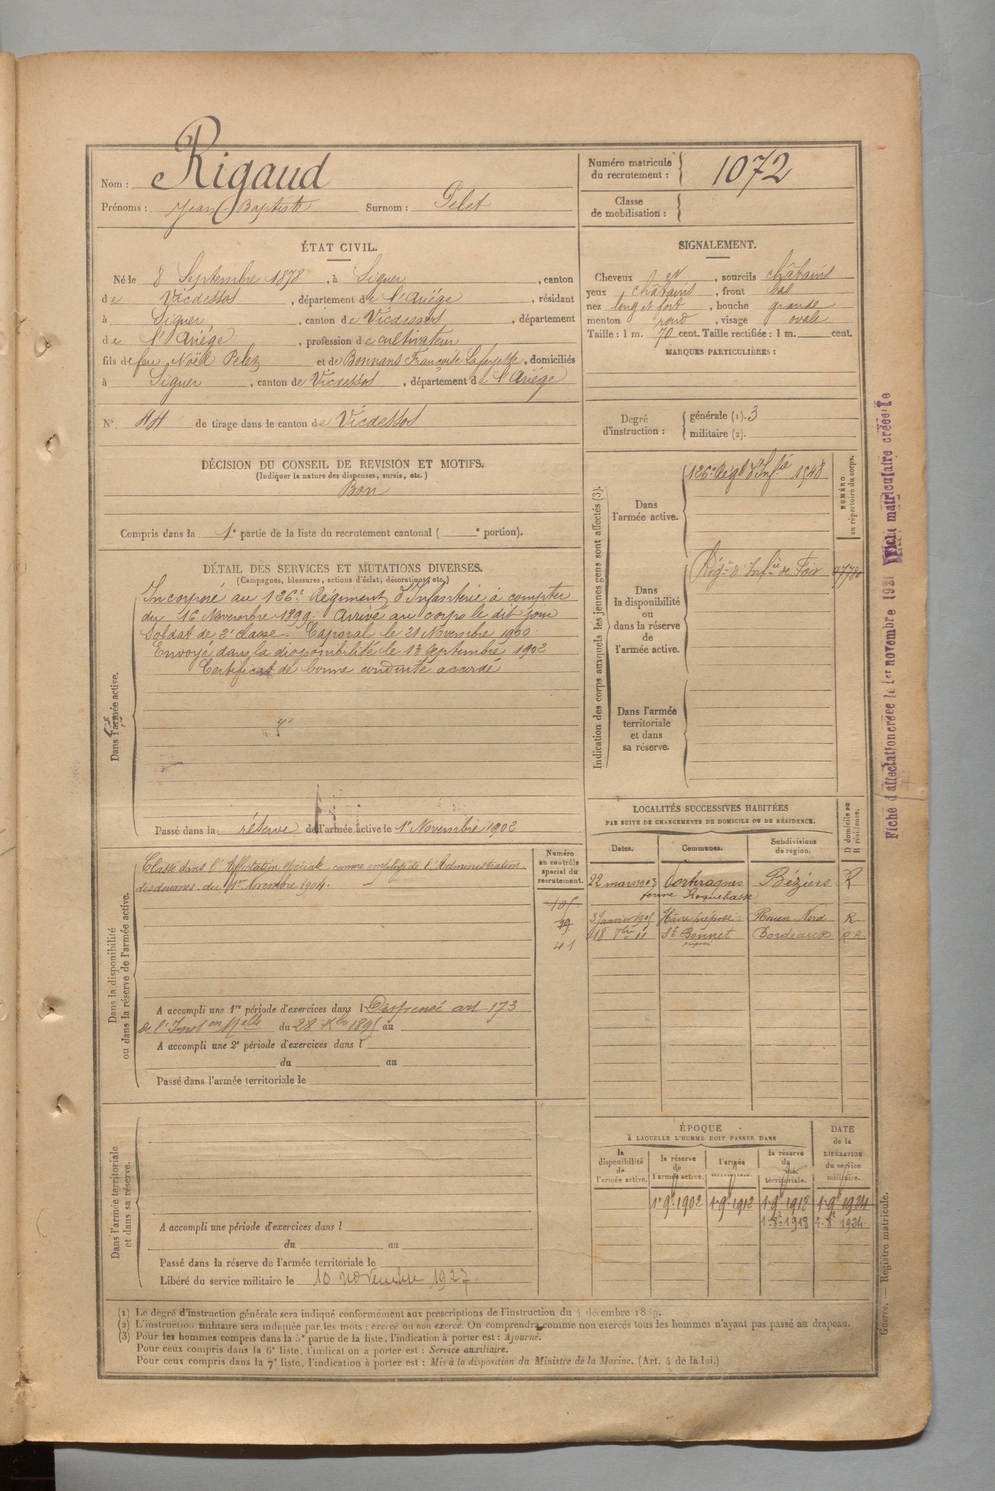 Nom : Rigaud
Prénoms : Jean Baptiste Surnom : Pelet
Numéro matricule du recrutement : 1072
Classe de mobilisation :
ÉTAT CIVIL.
Né le 8 Septembre 1878, à Siguer, canton
de Vicdessos, département de l'Ariège, résidant
à Siguer, canton de Vicdessos, département
de l'Ariège, profession de cultivateur
fils de feu Noël Pelez et de Bonnans Françoise Lafayette, domiciliés
à Siguer, canton de Vicdessos, département de l'Ariège
N° 44 de tirage dans le canton de Vicdessos
SIGNALEMENT.
Cheveux, sourcils châtains
yeux châtains, front bas
nez long et fort, bouche grande
menton rond, visage ovale
Taille : 1 m. 70 cent. Taille rectifiée : 1 m. cent.
MARQUES PARTICULIÈRES :
Degré d'instruction : générale (1). 3
militaire (2).
DÉCISION DU CONSEIL DE REVISION ET MOTIFS.
(Indiquer la nature des dispenses, sursis, etc.)
Bon
Compris dans la 1e partie de la liste du recrutement cantonal ( e portion).
DÉTAIL DES SERVICES ET MUTATIONS DIVERSES.
(Campagnes, blessures, actions d'éclat, décorations, etc.)
Dans l'armée active.
Incorporé au 126e Régiment d'Infanterie à compter
du 16 Novembre 1899. Arrivé au corps le dit jour
Soldat de 2e classe. Caporal le 21 Novembre 1900.
Envoyé dans la disponibilité le 13 Septembre 1902
Certificat de bonne conduite accordé
Passé dans la réserve de l'armée active le 1er Novembre 1902
Indication des corps auxquels les jeunes gens sont affectés (3).
NUMÉRO au répertoire du corps.
Dans l'armée active.
126e Régt d'Infie 1548
Dans la disponibilité ou dans la réserve de l'armée active.
Régt d'Infie de Foix
Dans l'armée territoriale et dans sa réserve.
Fiche d'affectation créée le 1er novembre 1921 Fiche matriculaire créée le
LOCALITÉS SUCCESSIVES HABITÉES
PAR SUITE DE CHANGEMENTS DE DOMICILE OU DE RÉSIDENCE.
Dates. Communes. Subdivisions de région. D domicile ou R résidence.
22 mars 1903 Portiragnes Béziers R
Roquebasse
3 Janvier 1905 Hâvre préposé Rouen Nord R
18 8bre 11 St Bonnet Bordeaux
Dans la disponibilité ou dans la réserve de l'armée active.
Numéro au contrôle spécial du recrutement.
Classé dans l'Affectation spéciale comme employé de l'Administration
des douanes du 1er Novembre 1904.
101
79
41
A accompli une 1re période d'exercices dans l Dispensé art 173
de l'Inston Mlle du 28 Xbre 1895 au
A accompli une 2e période d'exercices dans l
du au
Passé dans l'armée territoriale le
Dans l'armée territoriale et dans sa réserve.
A accompli une période d'exercices dans l
du au
Passé dans la réserve de l'armée territoriale le
Libéré du service militaire le 10 novembre 1927.
ÉPOQUE
À LAQUELLE L'HOMME DOIT PASSER DANS
la disponibilité de l'armée active. la réserve de l'armée active. l'armée territoriale. la réserve de l'armée territoriale.
DATE de la LIBÉRATION du service militaire.
1er 9bre 1902 1er 9bre 1912 1er 9bre 1918 1er 9bre 1924
1er 8bre 1918 1er 8bre 1924
Guerre. — Registre matricule.
(1) Le degré d'instruction générale sera indiqué conformément aux prescriptions de l'instruction du 4 décembre 1889.
(2) L'instruction militaire sera indiquée par les mots : exercé ou non exercé. On comprendra comme non exercés tous les hommes n'ayant pas passé au drapeau.
(3) Pour les hommes compris dans la 5e partie de la liste, l'indication à porter est : Ajourné.
Pour ceux compris dans la 6e liste, l'indication à porter est : Service auxiliaire.
Pour ceux compris dans la 7e liste, l'indication à porter est : Mis à la disposition du Ministre de la Marine. (Art. 4 de la loi.)